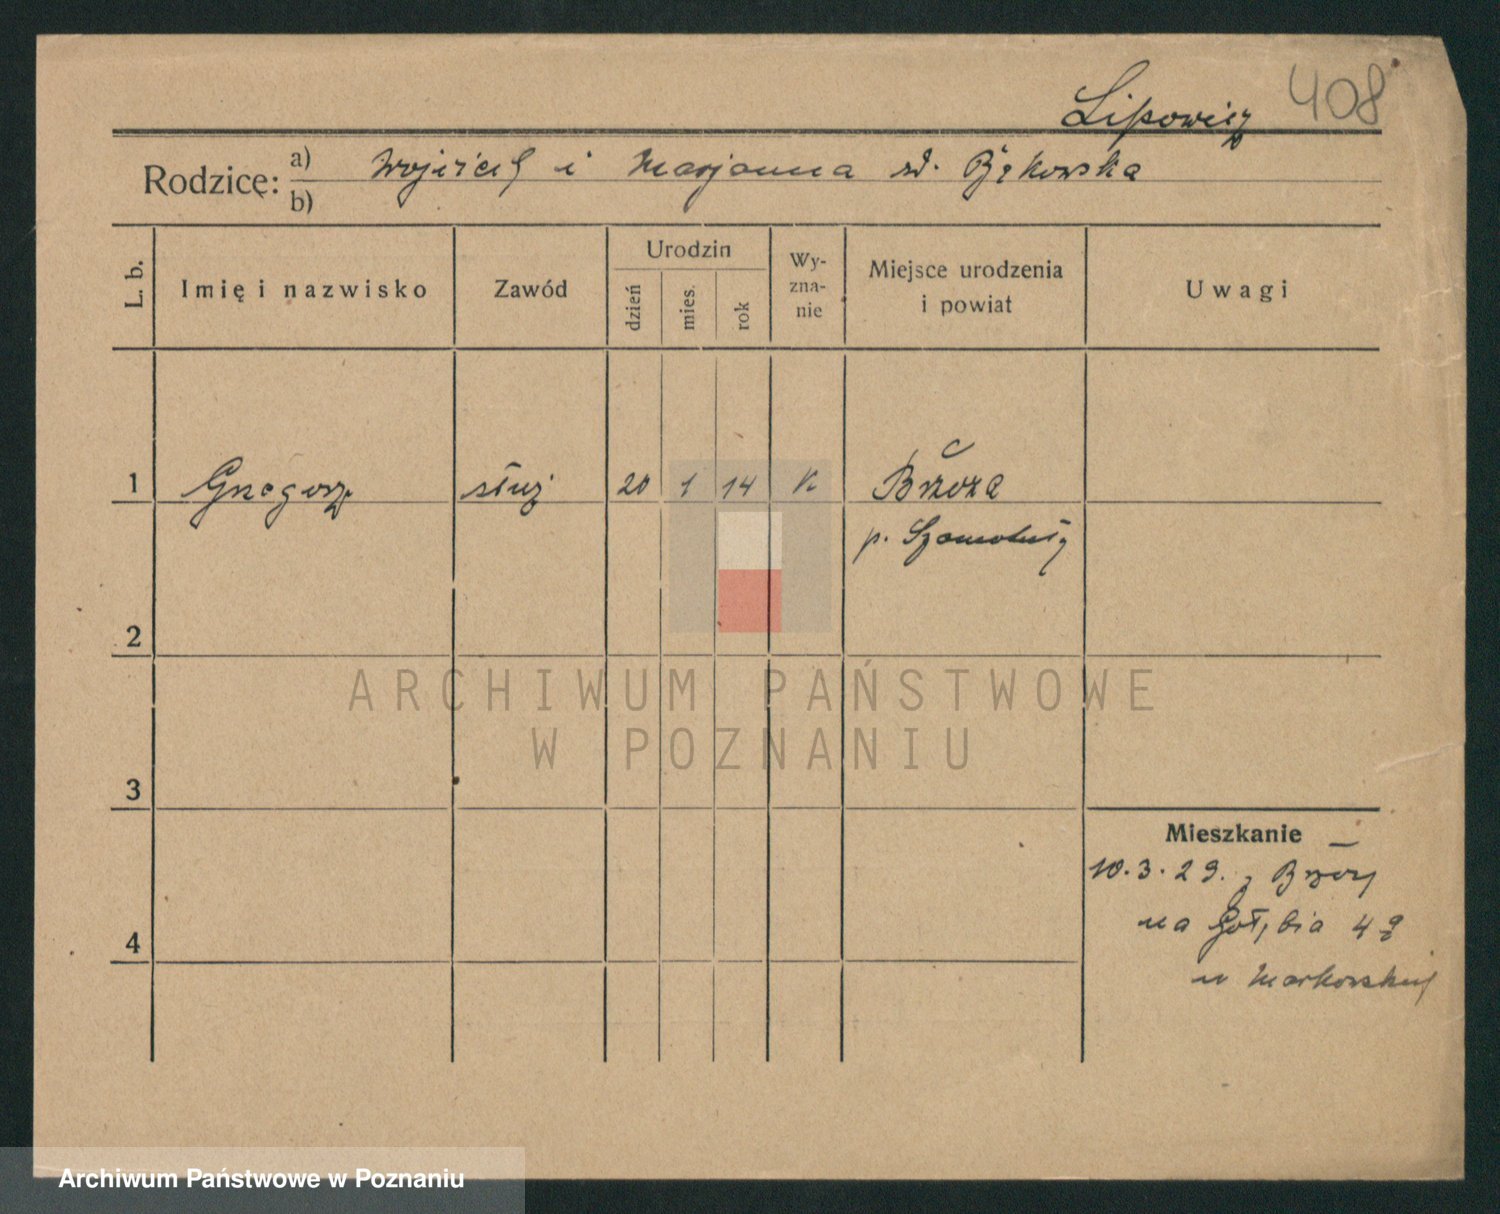 408
Lipowicz
Rodzice: a) Wojciech i Marjanna rd. Bąkowska
b)
L. b.
Imię i nazwisko
Zawód
Urodzin
dzień
mies.
rok
Wy-
zna-
nie
Miejsce urodzenia
i powiat
Uwagi
1 Grzegorz służ 20 1 14 K Brzoza
p. Szamotuły
2
3
4
Mieszkanie
10.3.29. z
na Gołębia 4
u
ARCHIWUM PAŃSTWOWE
W POZNANIU
Archiwum Państwowe w Poznaniu